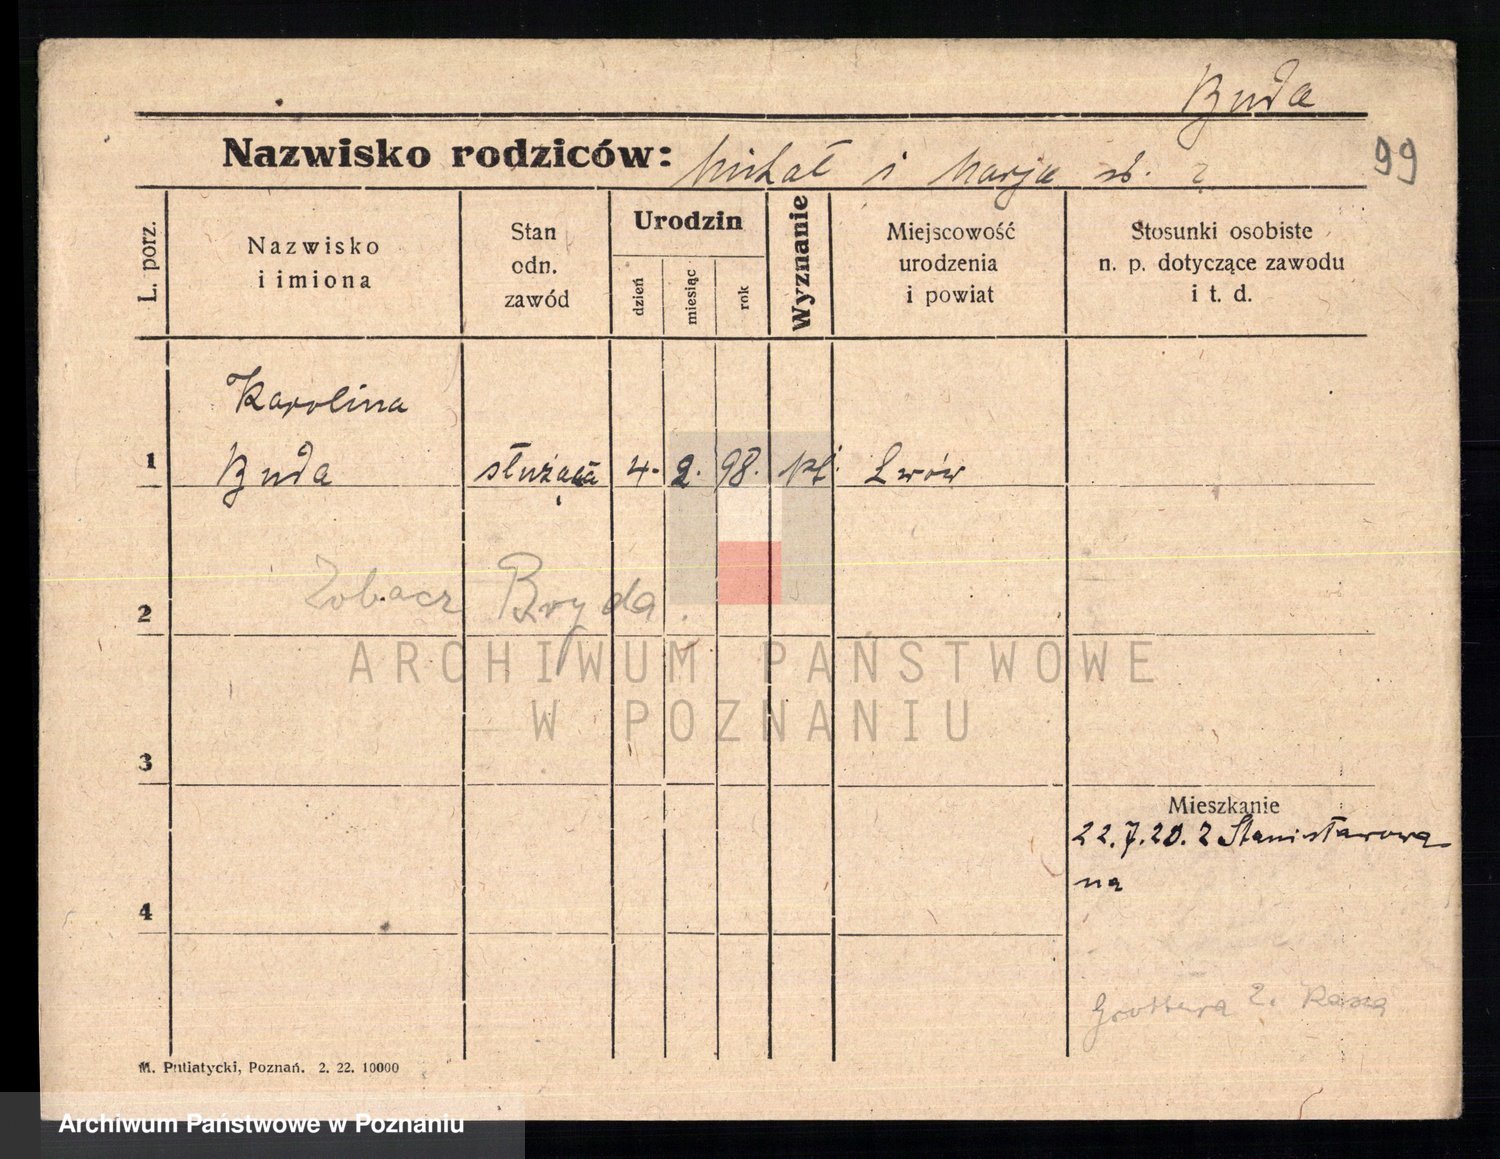 Buda
Nazwisko rodziców: Michał i Marja zb. ?
99
L. porz.
Nazwisko
i imiona
Stan
odn.
zawód
Urodzin
dzień
miesiąc
rok
Wyznanie
Miejscowość
urodzenia
i powiat
Stosunki osobiste
n. p. dotyczące zawodu
i t. d.
Karolina
1 Buda służąca 4. 2. 98. kł. Lwów
2 Zobacz Bryda.
3
Mieszkanie
22.7.20. z Stanisławowa
na
4
Grottgera 2.
M. Putiatycki, Poznań. 2. 22. 10000
ARCHIWUM PAŃSTWOWE
W POZNANIU
Archiwum Państwowe w Poznaniu